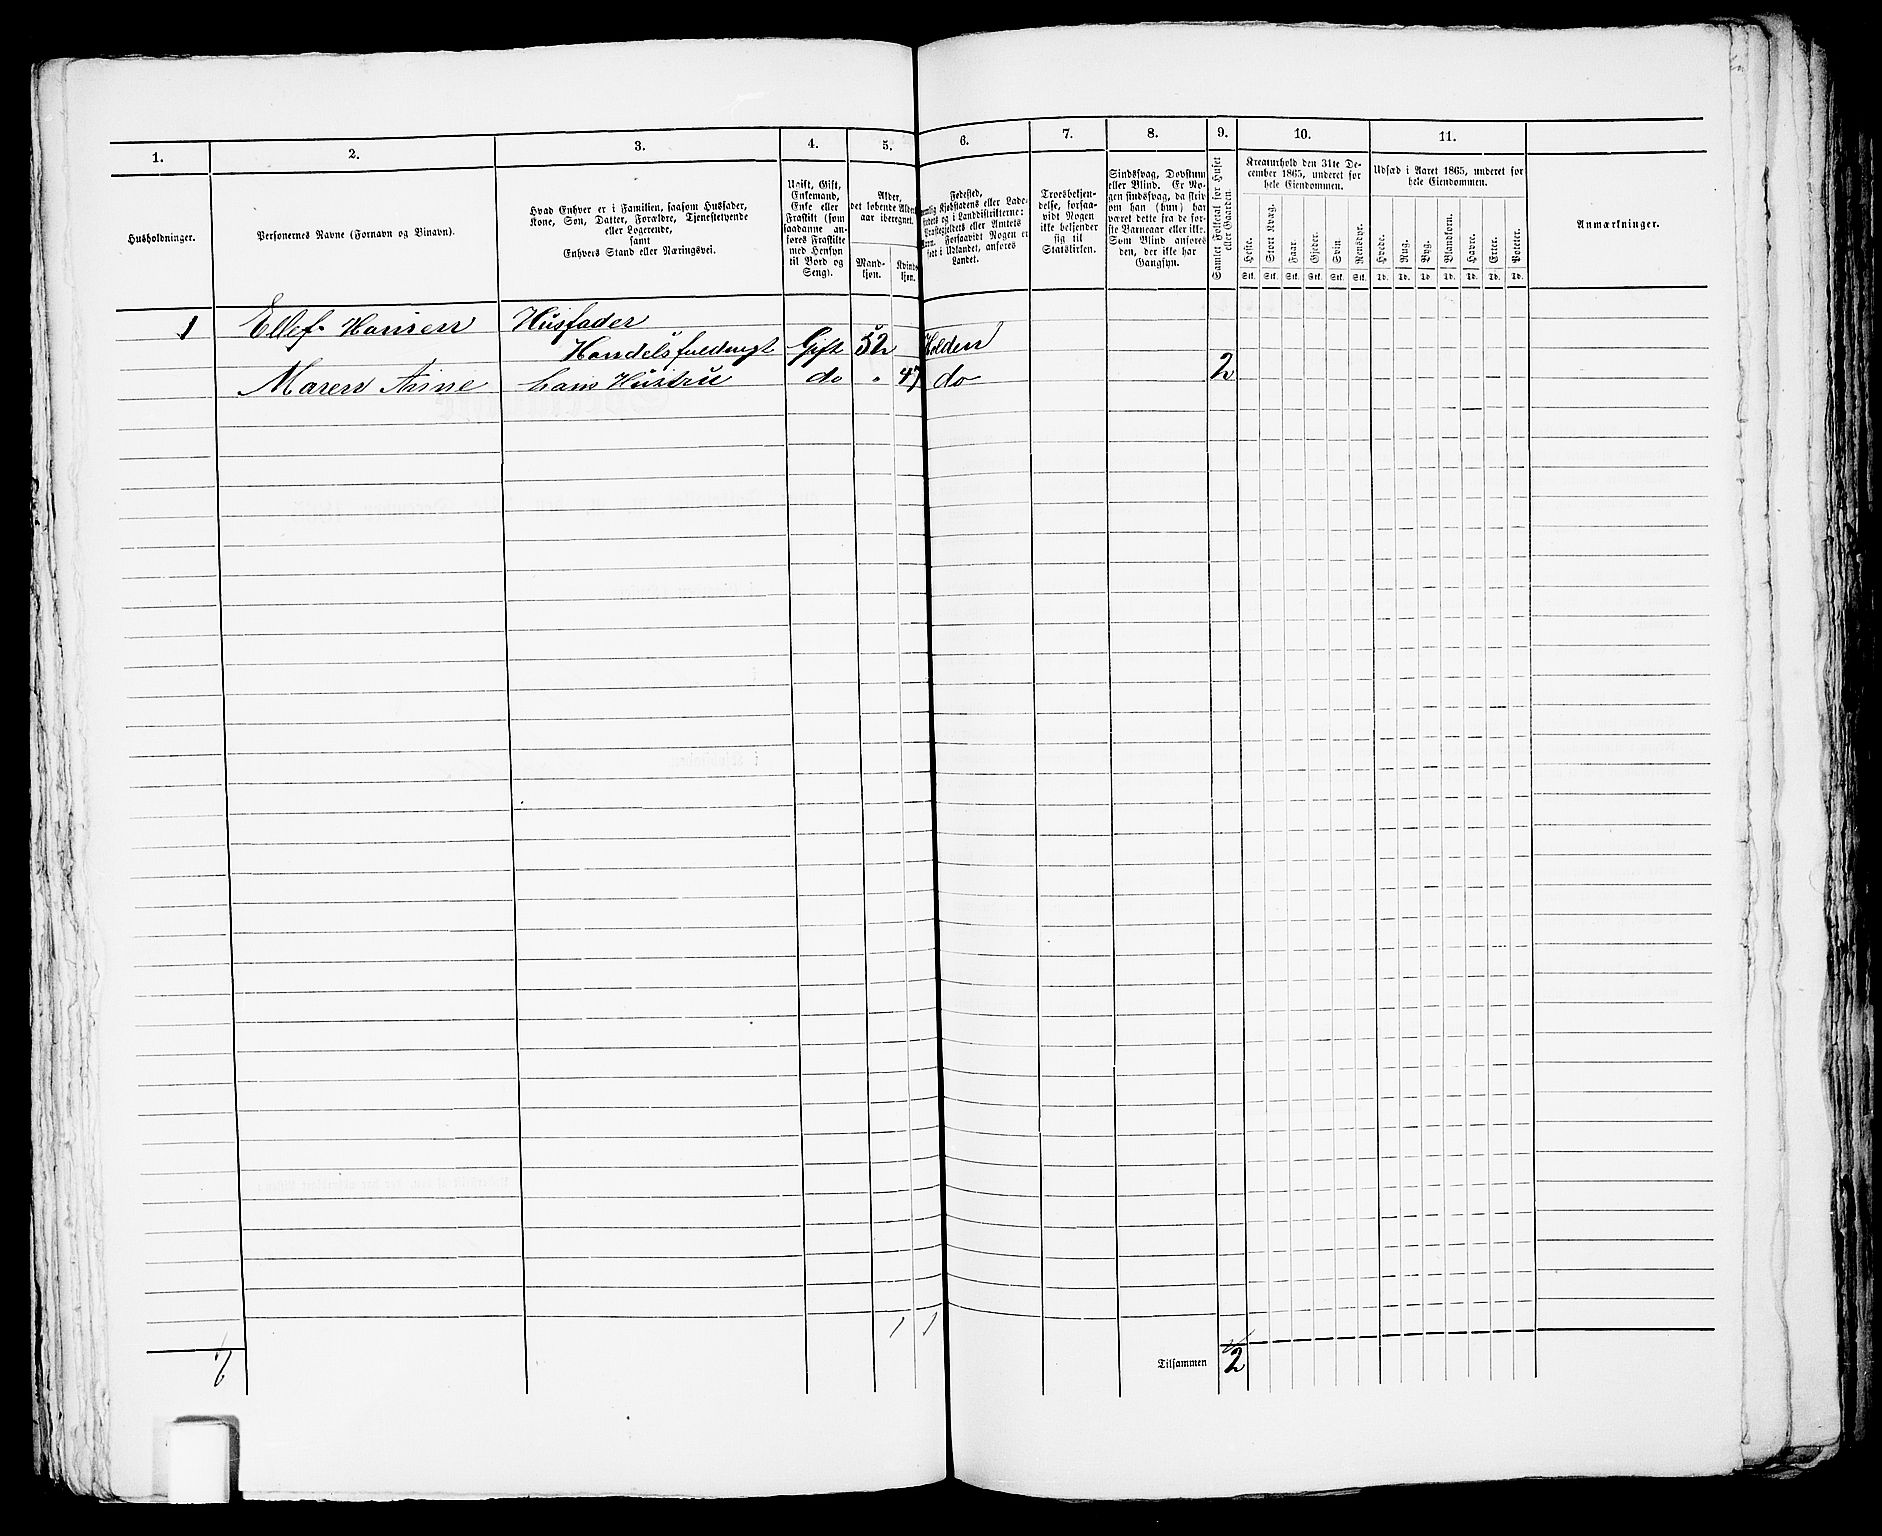 1. 2. 3. 4. 5. 6. 7. 8. 9. 10. 11.
Husholdninger.
Personernes Navne (Fornavn og Binavn).
Hvad Enhver er i Familien, saasom Husfader,
Kone, Søn, Datter, Forældre, Tjenestetyende
eller Logerende,
samt
Enhvers Stand eller Næringsvei.
Ugift, Gift,
Enkemand,
Enke eller
Fraskilt (som
saadanne an-
føres Fraskilte
med Hensyn
til Bord og
Seng).
Alder,
det løbende Alders-
aar iberegnet.
Mand-
kjøn.
Kvind
kjøn.
Fødested,
Kjøbstadens eller Lade-
i Landdistrikterne:
Præstegjeldets eller Amtets
Navn. Forsaavidt Nogen er
født i Udlandet, anføres
Landet.
Troesbekjen-
delse, forsaa-
vidt Nogen
ikke bekjender
sig til
Statskirken.
Sindssvag, Døvstum
eller Blind. Er No-
gen sindssvag, da skriv
om han (hun) har
været dette fra de før-
ste Barneaar eller ikke.
Som Blind anføres
den, der ikke har
Gangsyn.
Samlet Folketal for Huset
eller Gaarden.
Kreaturhold den 31te De-
cember 1865, underet for
hele Eiendommen.
Heste. Stort Kvæg. Faar. Gjeder. Svin. Rensdyr.
Stk. Stk. Stk. Stk. Stk. Stk.
Udsæd i Aaret 1865, underet for
hele Eiendommen.
Hvede. Rug. Byg. Blandkorn. Havre. Erter. Poteter.
Td. Td. Td. Td. Td. Td. Td.
Anmærkninger.
1 Ellef Hansen Husfader
Handelsfuldmægt Gift 52 Holden
Maren Anne hans Hustru do " 47 do 2
1 1
Tilsammen 2